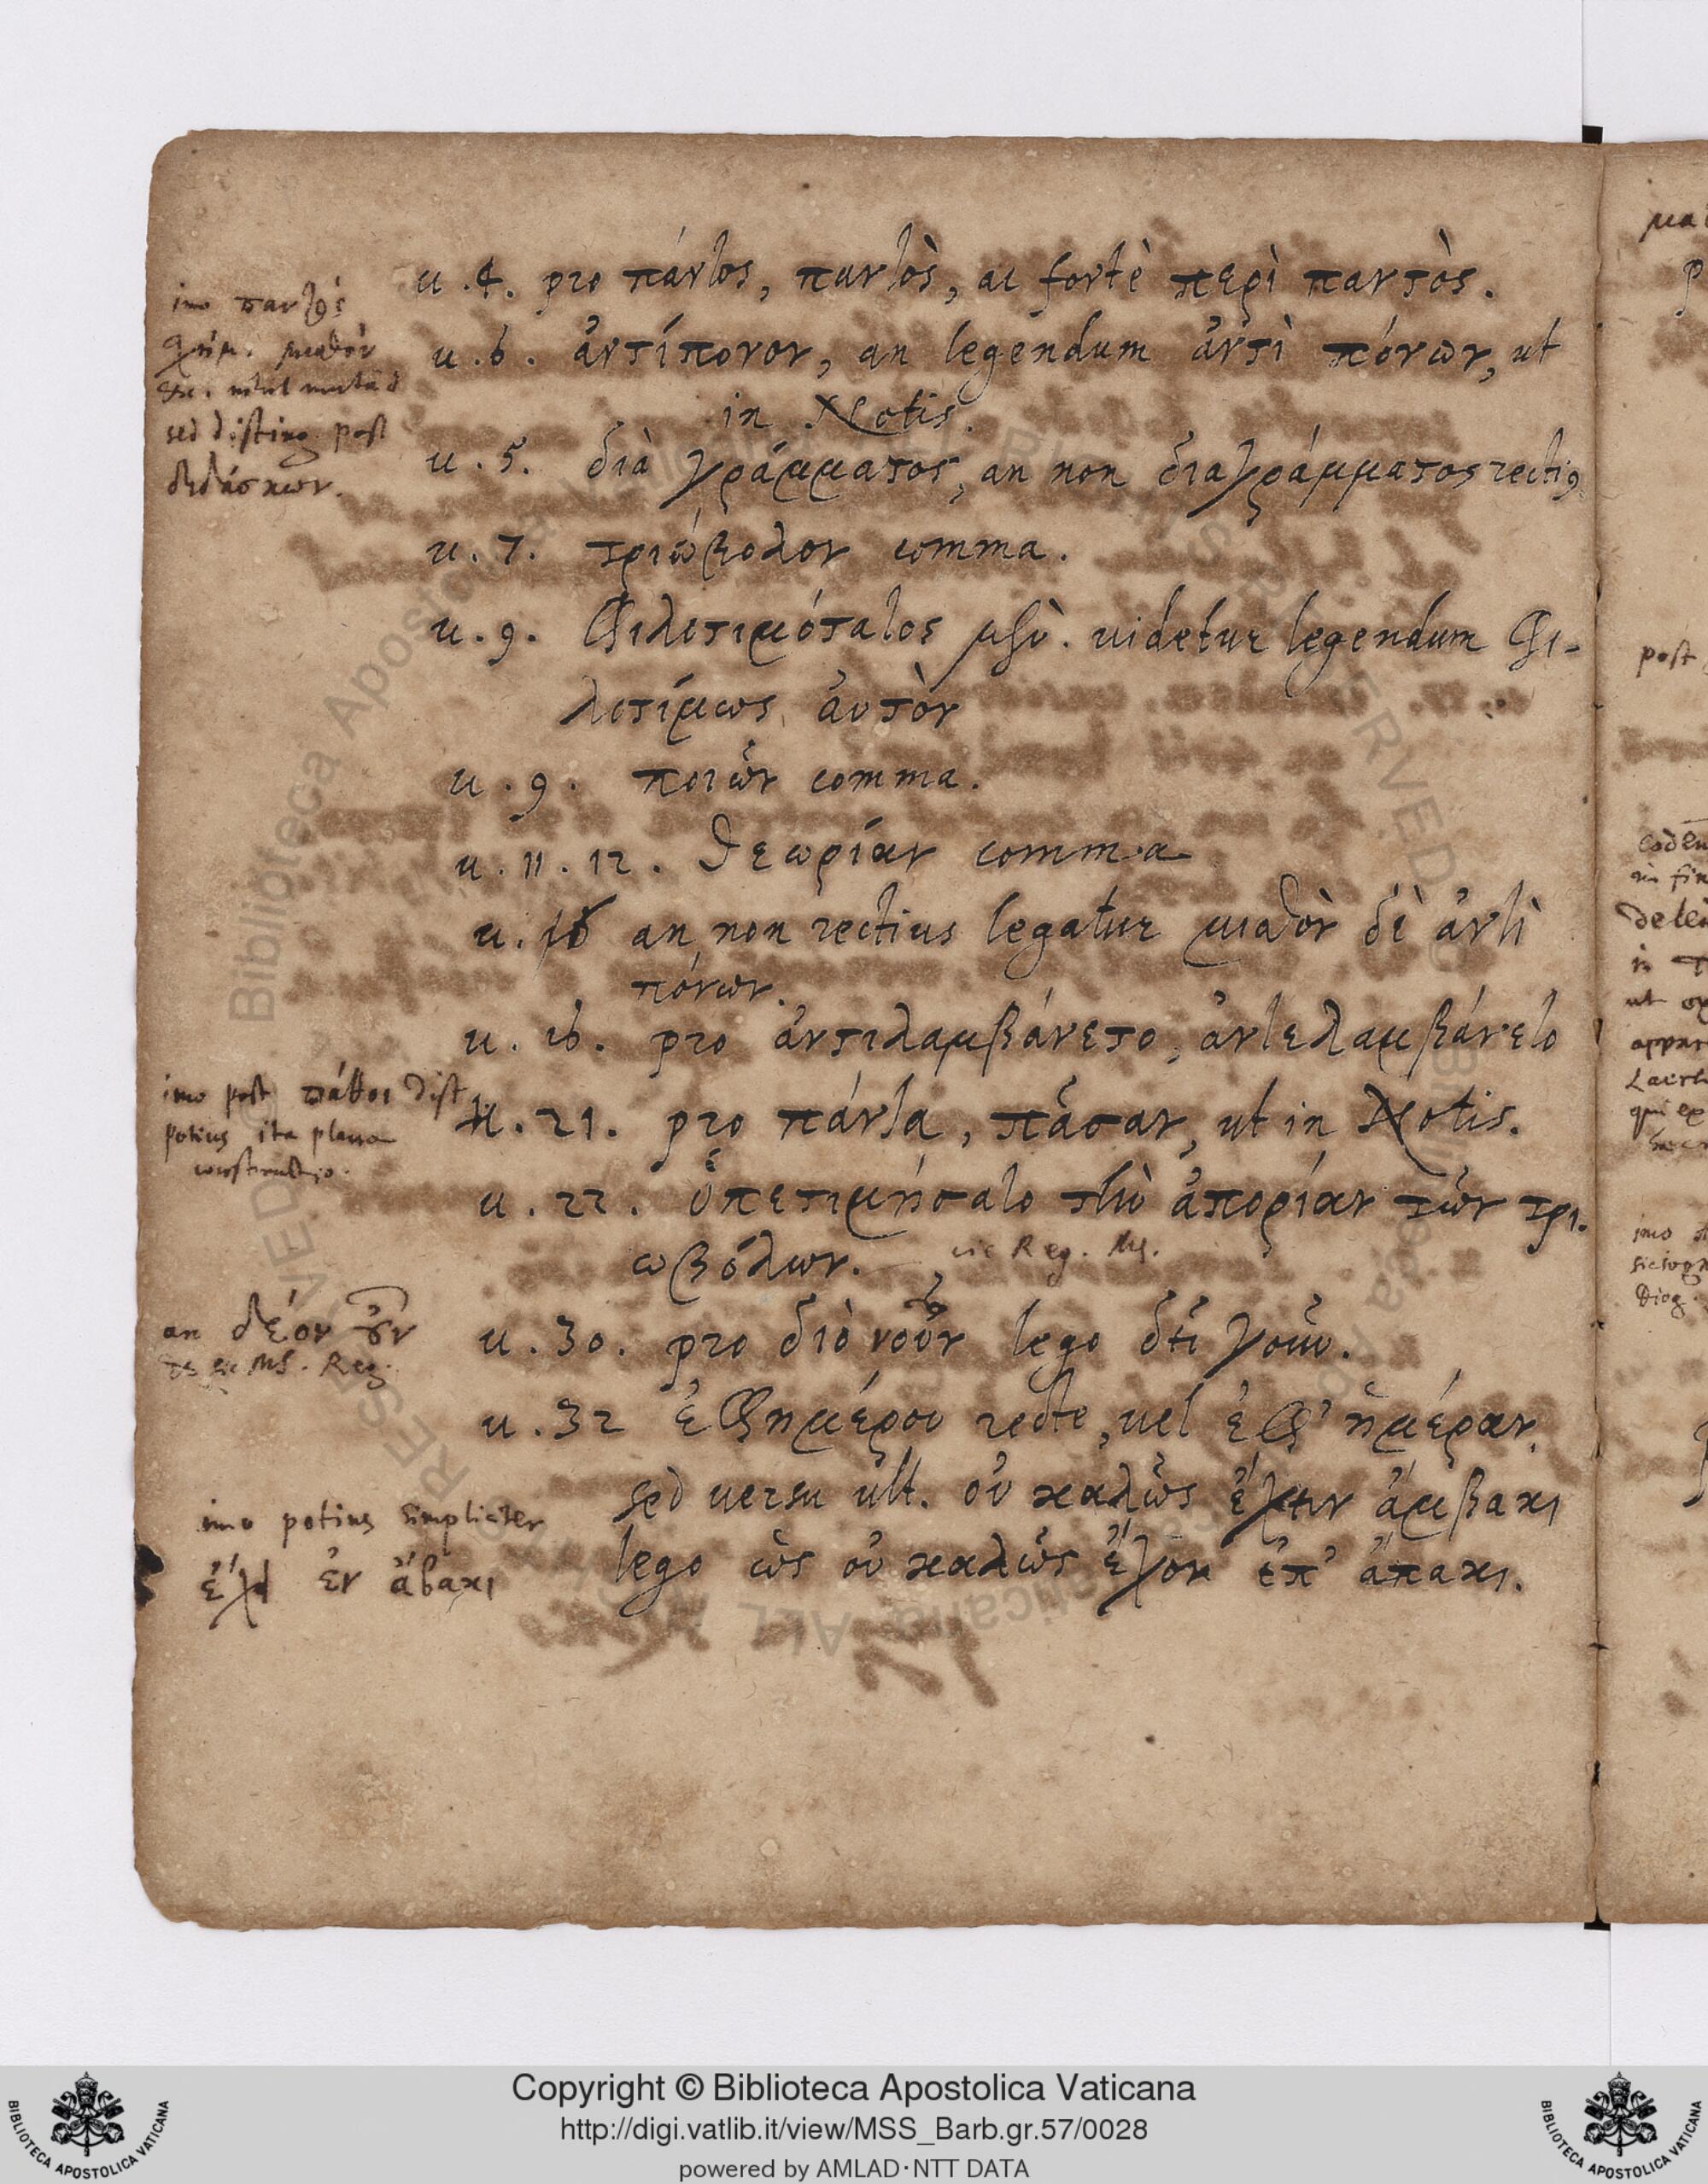 u. 4. pro πάντος, παντὸς, aut fortè περὶ παντὸς.
imo παντὸς
μισθὸν
&c. nihil mutad
sed disting. post
διδάσκων.
u. 6. ἀντίπονον, an legendum ἀντὶ πόνων, ut
in Notis.
u. 5. διὰ γράμματος, an non διαγράμματος rectius
u. 7. τριώβολον comma.
u. 9. Φιλοτιμότατος μὲν. uidetur legendum Φι-
λοτίμως αὐτὸν
u. 9. ποιῶν comma.
u. 11. 12. θεωρίαν comma
u. 16 an non rectius legatur μισθὸν δὲ ἀντὶ
πόνων.
u. 16. pro ἀντιλαμβάνετο, ἀντελαμβάνετο
imo post πάθοι dist
potius ita plana
constructio.
u. 21. pro πάντα, πᾶσαν, ut in Notis.
u. 22. ὑπετιμήσατο τὴν ἀπορίαν τῶν τρι-
ωβόλων. sic Reg. MS.
an δέον οὖν
sic MS. Reg.
u. 30. pro διὸ νοῦν lego ὅτι γοῦν.
u. 32 ἐφημέρου recte, uel ἐφ' ἡμέραν,
sed uersu ult. οὐ καλῶς ἔχειν ἄμβακι
lego ὡς οὐ καλῶς ἔχον ἐπ' ἄπακι.
imo potius simpliciter
ἔχει ἐν ἄβακι
post
Copyright © Biblioteca Apostolica Vaticana
http://digi.vatlib.it/view/MSS_Barb.gr.57/0028
powered by AMLAD·NTT DATA
BIBLIOTECA APOSTOLICA VATICANA
BIBLIOTECA APOSTOLICA VATICANA